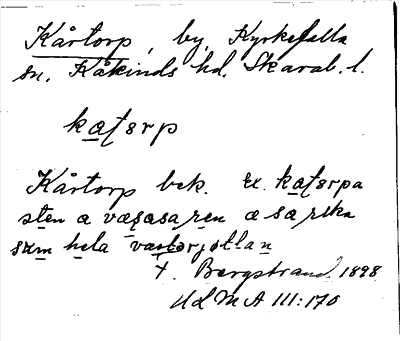 Kårtorp, by, Kyrkefalla
sn, Kåkinds hd. Skarab. l.
kaʈɵrp
Kårtorp bek. ex. kaʈɵrpa
sten a væsasaren æ sa rika
sɵm hela væstɵrjøtlan
F. Bergstrand 1898
ULMA III:170